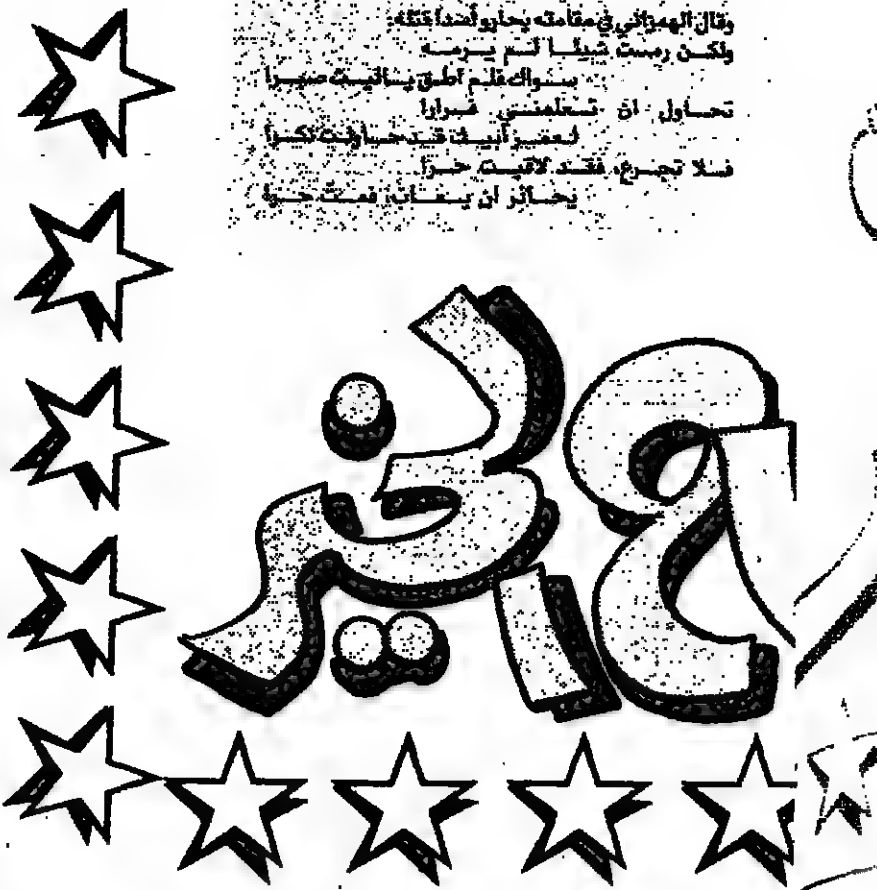 وقال الهمزاني في مقامته يحاور أسدا قتله:
ولكن رمت شيئا لم يرمه
سواك فلم أطق ياليث صبرا
تحاول ان تعلمني فرارا
لعمر أبيك قد حاولت نكرا
فلا تجزع، فقد لاقيت حرا
يحاذر أن يعاب، فمت حرا